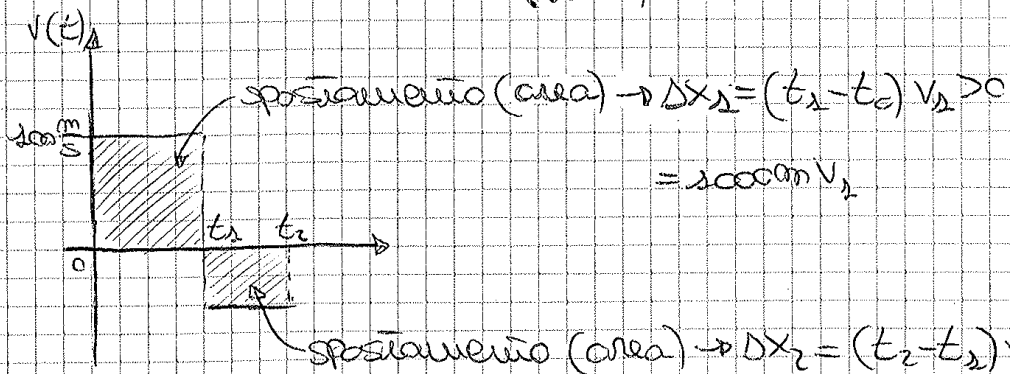 v(t)
spostamento (area) → Δx₁ = (t₁ - t₀) v₁ > 0
100 m/s
= 1000m v₁
t₁ t₂
0
spostamento (area) → Δx₂ = (t₂ - t₁)